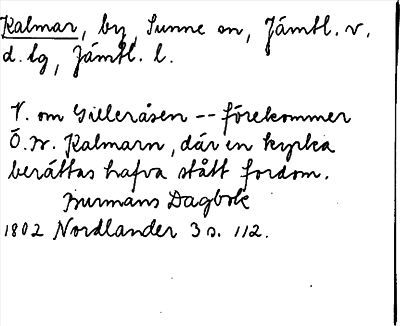 Kalmar, by, Sunne sn, Jämtl. v.
d. lg, Jämtl. l.
V. om Gilleråsen -- förekommer
Ö. W. Kalmarn, där en kyrka
berättas hafva stått fordom.
Burmans Dagbok
1802 Nordlander 3 s. 112.